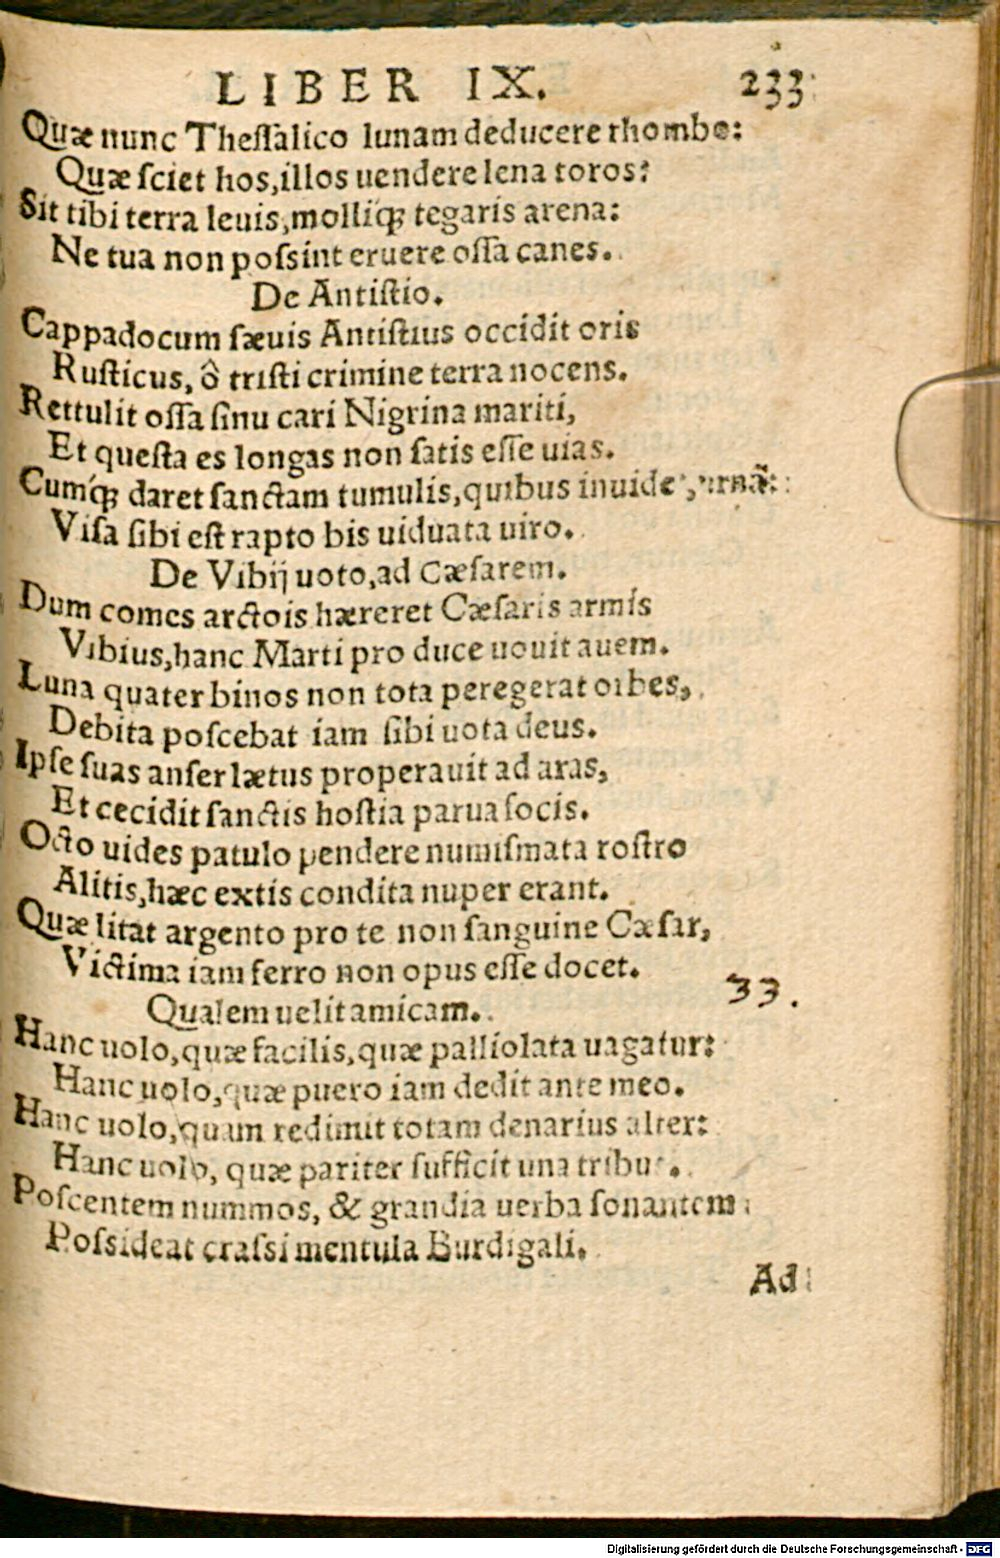 LIBER IX. 233
Quæ nunc Theſſalico lunam deducere rhombo:
Quæ ſciet hos, illos uendere lena toros?
Sit tibi terra leuis, molliq́ꝫ tegaris arena:
Ne tua non poſsint eruere oſſa canes.
De Antiſtio.
Cappadocum ſæuis Antiſtius occidit oris
Ruſticus, ô triſti crimine terra nocens.
Rettulit oſſa ſinu cari Nigrina mariti,
Et queſta es longas non ſatis eſſe uias.
Cumq́ꝫ daret ſanctam tumulis, quibus inuidet, urnã:
Viſa ſibi eſt rapto bis uiduata uiro.
De Vibij uoto, ad Cæſarem.
Dum comes arctois hæreret Cæſaris armis
Vibius, hanc Marti pro duce uouit auem.
Luna quater binos non tota peregerat orbes,
Debita poſcebat iam ſibi uota deus.
Ipſe ſuas anſer lætus properauit ad aras,
Et cecidit ſanctis hoſtia parua focis.
Octo uides patulo pendere numiſmata roſtro
Alitis, hæc extis condita nuper erant.
Quæ litat argento pro te non ſanguine Cæſar,
Victima iam ferro non opus eſſe docet.
33.
Qualem uelit amicam.
Hanc uolo, quæ facilis, quæ palliolata uagatur:
Hanc uolo, quæ puero iam dedit ante meo.
Hanc uolo, quam redimit totam denarius alter:
Hanc uolo, quæ pariter ſufficit una tribus.
Poſcentem nummos, & grandia uerba ſonantem
Poſsideat craſsi mentula Burdigali.
Ad
Digitalisierung gefördert durch die Deutsche Forschungsgemeinschaft - DFG